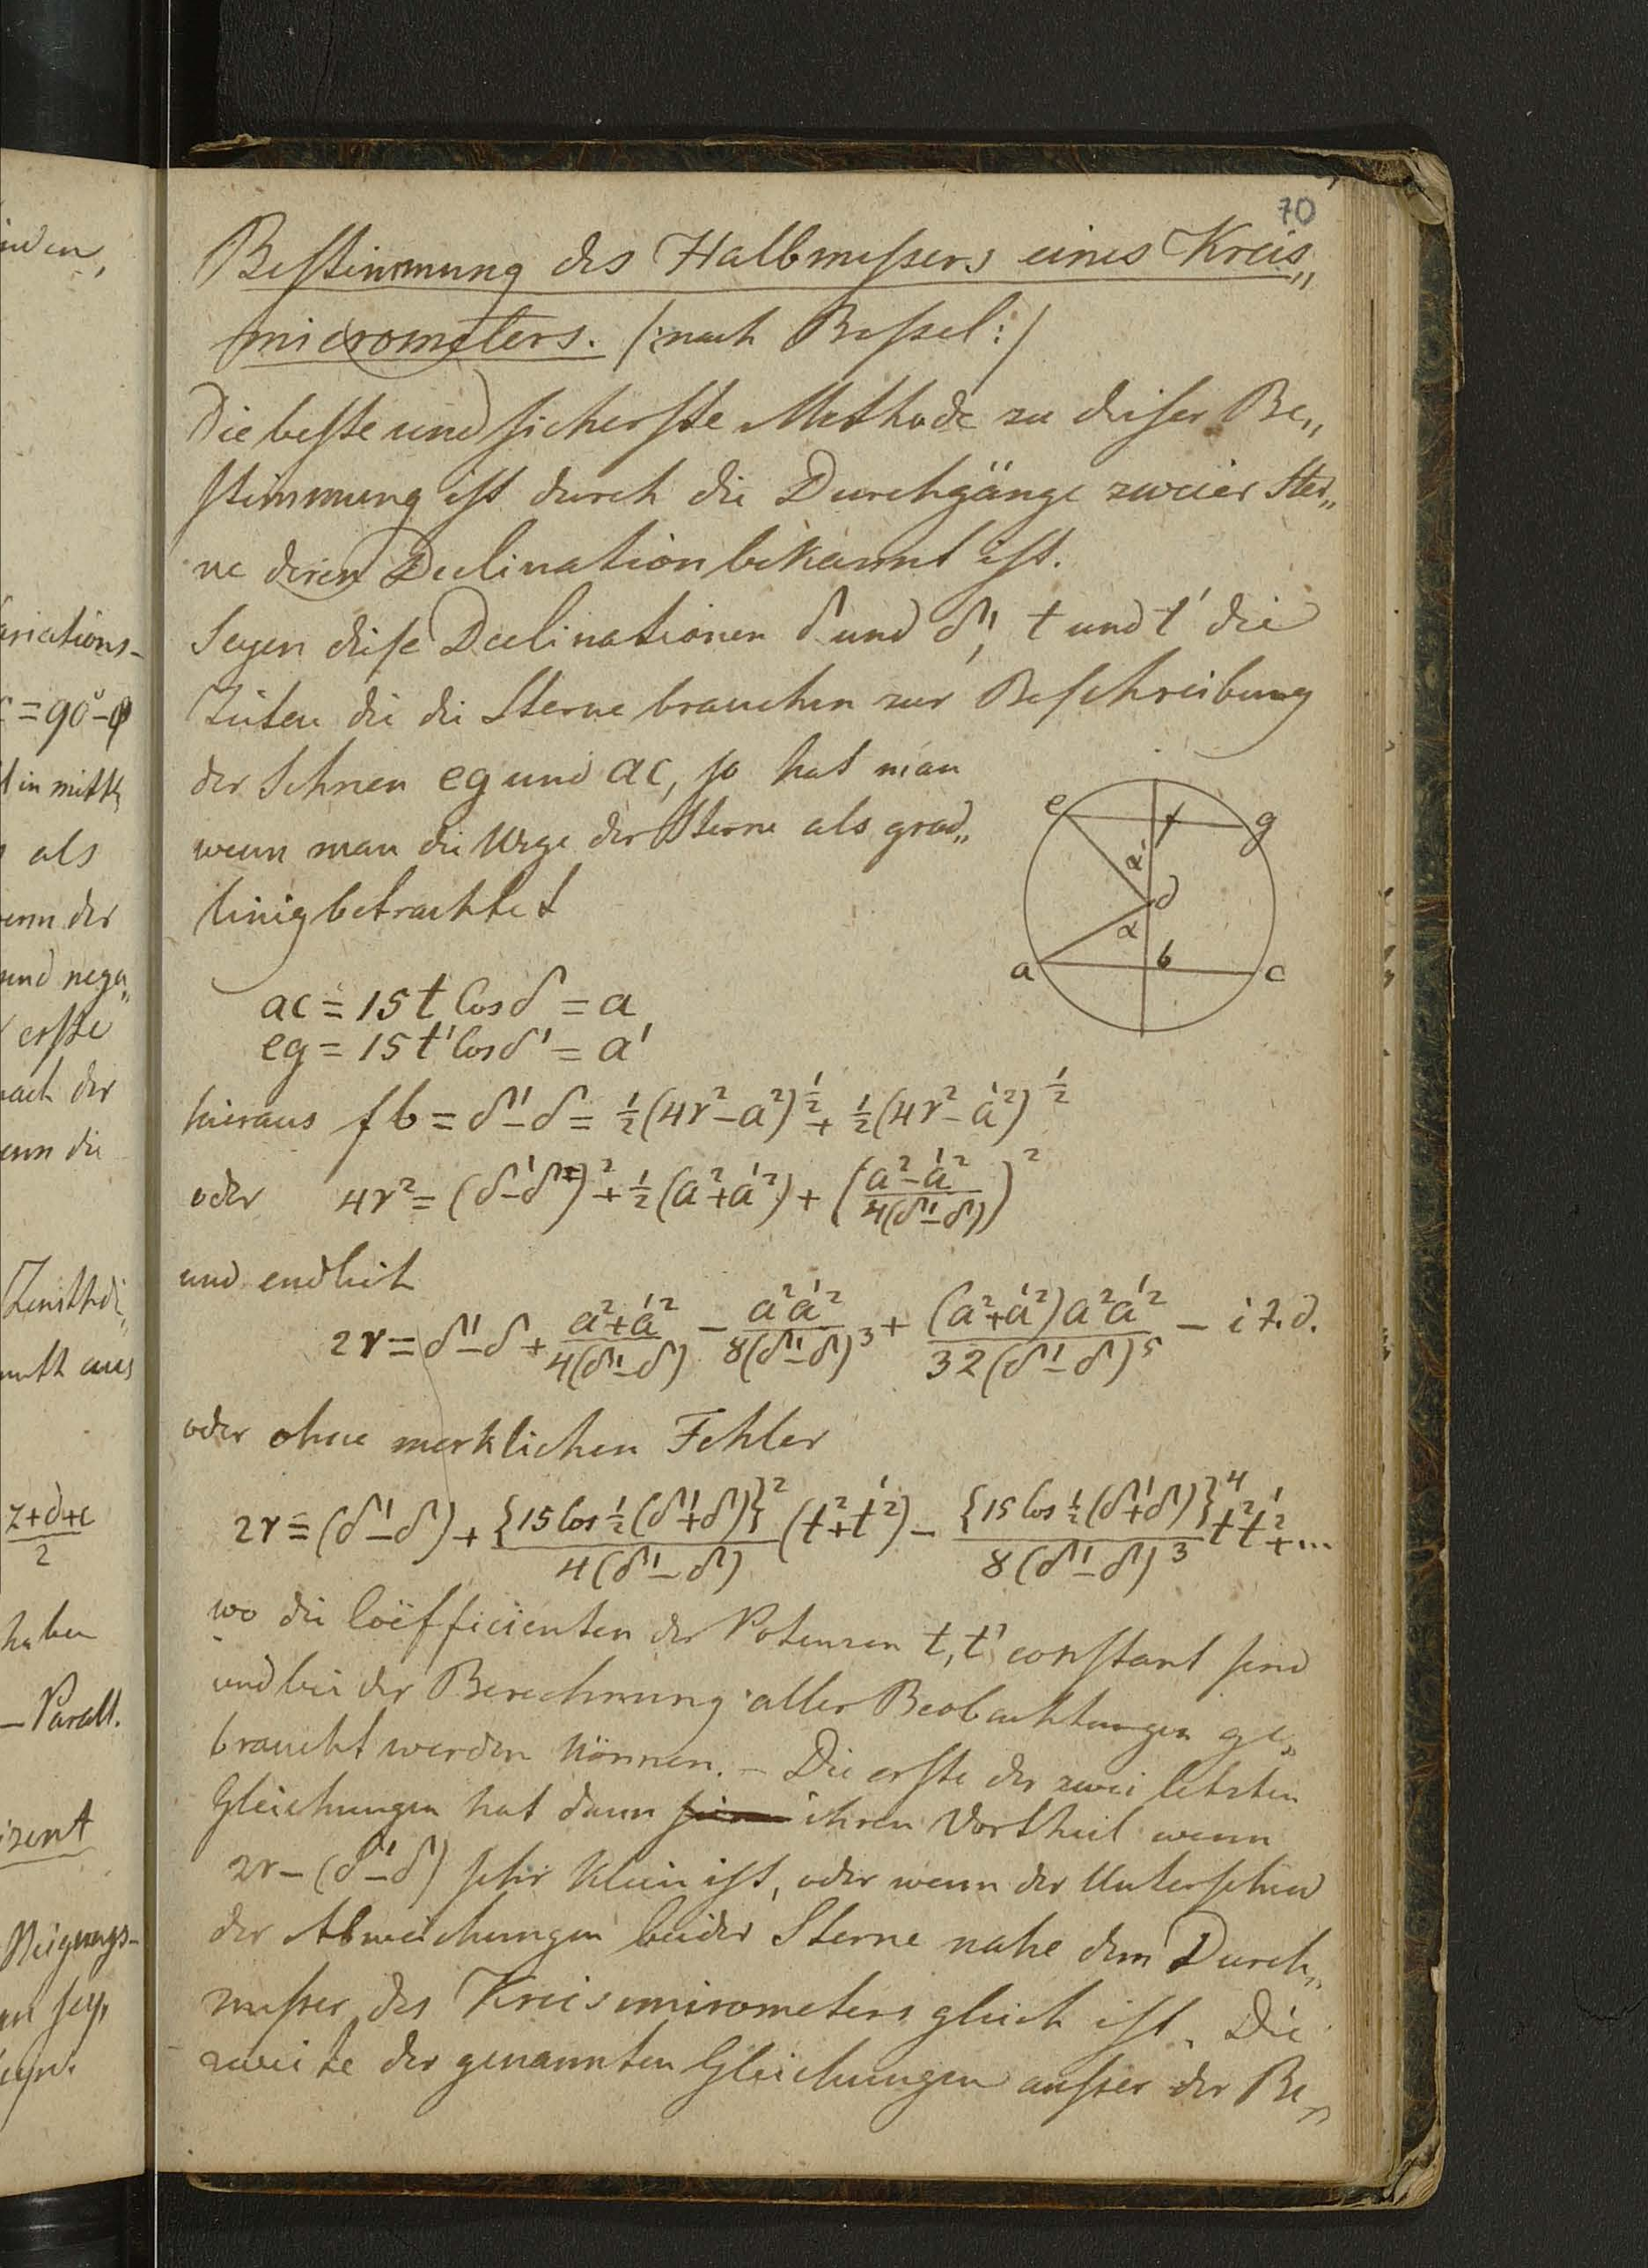 70
Bestimmung des Halbmessers eines Kreis„
micrometers. /: nach Bessel :/
Die beste und sicherste Methode zu dieser Be„
stimmung ist durch die Durchgänge zweier Ster„
ne deren Declination bekannt ist.
Seyen diese Declinationen δ und δ', t und t' die
Zeiten die die Sterne brauchen zur Beschreibung
der Sehnen eg und ac, so hat man
wenn man die Wege der Sterne als grad„
linig betrachtet
e f g
α'
d
α
a b c
ac = 15 t Cos δ = a
eg = 15 t' Cos δ' = a'
hieraus fb = δ' - δ = ½(4r² - a²)^½ + ½(4r² - a'²)^½
oder 4r² = (δ' - δ)² + ½(a² + a'²) + ((a² - a'²)/(4(δ' - δ)))²
und endlich
2r = δ' - δ + (a² + a'²)/(4(δ' - δ)) - (a² a'²)/(8(δ' - δ)³) + ((a² + a'²) a² a'²)/(32(δ' - δ)⁵) - i t. d.
oder ohne merklichen Fehler
2r = (δ' - δ) + {15 Cos ½(δ' + δ)}²/(4(δ' - δ)) (t² + t'²) - {15 Cos ½(δ' + δ)}⁴/(8(δ' - δ)³) t² t'² + ...
wo die Coëfficienten der Potenzen t, t' constant sind
und bei der Berechnung aller Beobachtungen ge„
braucht werden können. – Die erste der zwei letzten
Gleichungen hat dann ihren Vortheil wenn
2r - (δ' - δ) sehr klein ist, oder wenn der Unterschied
der Abweichungen beider Sterne nahe dem Durch„
messer des Kreismicrometers gleich ist. Die
zweite der genannten Gleichungen ausser der Be„
inden,
ariations-
= 90° - φ
in mittl,
als
wenn der
und nega„
erste
nach der
wenn die
Zenithdi„
aus
z+δ+c
2
haben
– Parall.
izent
Neigungs-
sey,